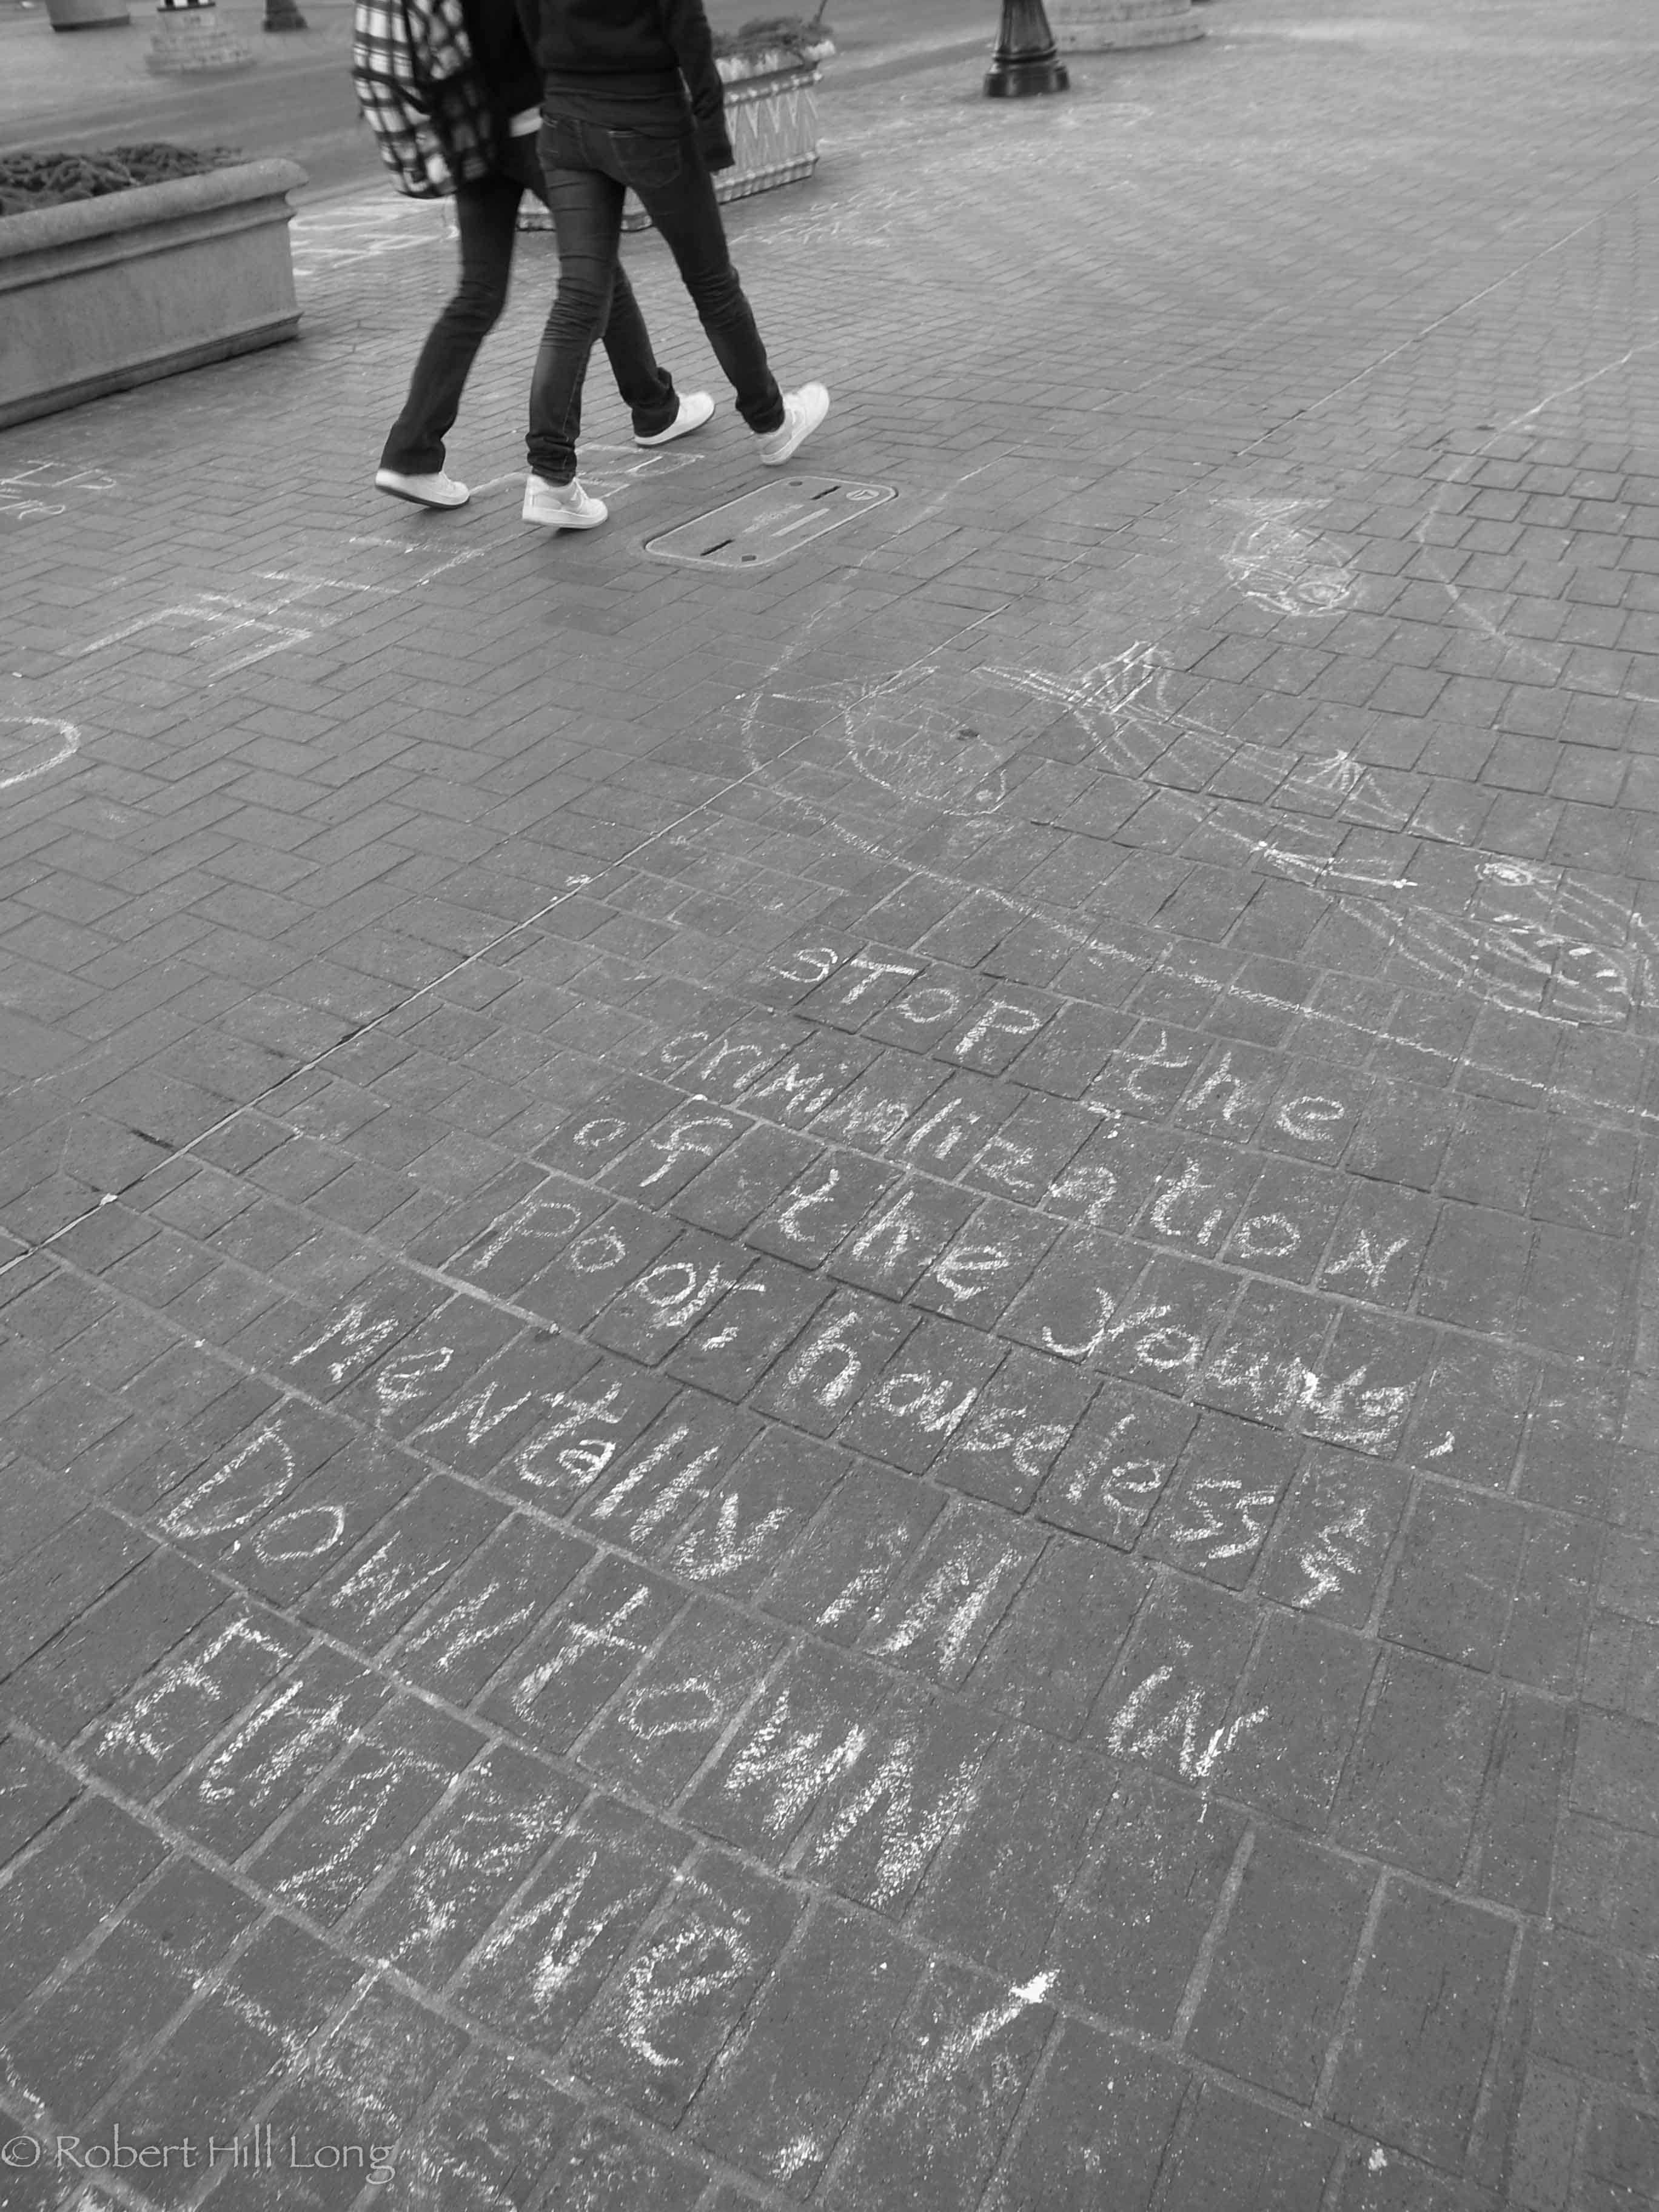 STOP the
criminalization
of the young,
Poor, houseless &
Mentally ill in
DowntowN
EUGENE!
© Robert Hill Long